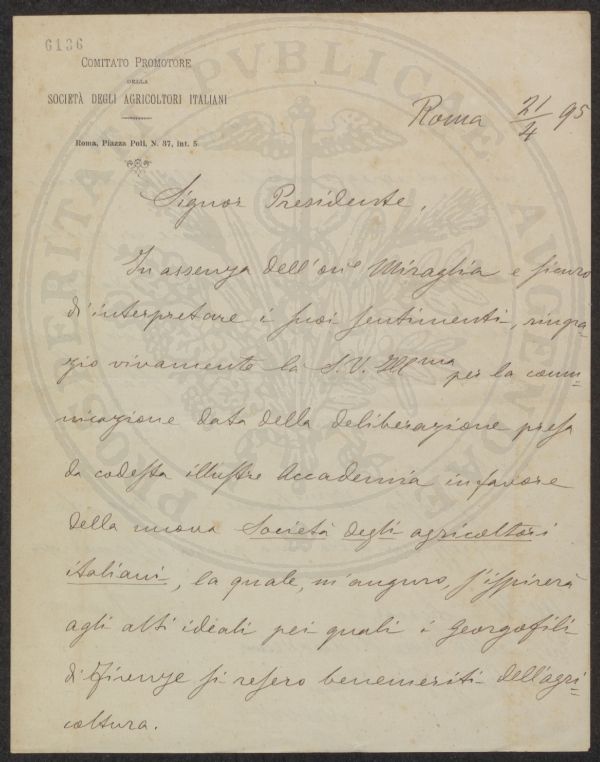 6136
COMITATO PROMOTORE
DELLA
SOCIETÀ DEGLI AGRICOLTORI ITALIANI
Roma, Piazza Poli, N. 37, int. 5
Roma 21/4 95
Signor Presidente,
In assenza dell'on.le Miraglia e sicuro
d'interpretare i suoi sentimenti, ringra=
zio vivamente la S.V. Ill.ma per la comu=
nicazione data della deliberazione presa
da codesta illustre Accademia in favore
della nuova Società degli agricoltori
italiani, la quale, m'auguro, s'ispirerà
agli alti ideali pei quali i Georgofili
di Firenze si resero benemeriti dell'agri=
coltura.
PROSPERITATI PVBLICAE AVGENDAE